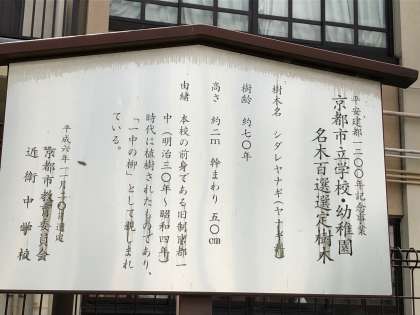 平安建都一二〇〇年記念事業
京都市立学校・幼稚園
名木百選選定樹木
樹木名 シダレヤナギ(ヤナギ科)
樹齢 約七〇年
高さ 約二m 幹まわり 五〇cm
由緒 本校の前身である旧制京都一
中(明治三〇年～昭和四年)
時代に植樹されたものであり、
「一中の柳」として親しまれ
ている。
平成六年一一月 日選定
京都市教育委員会
近衛中学校